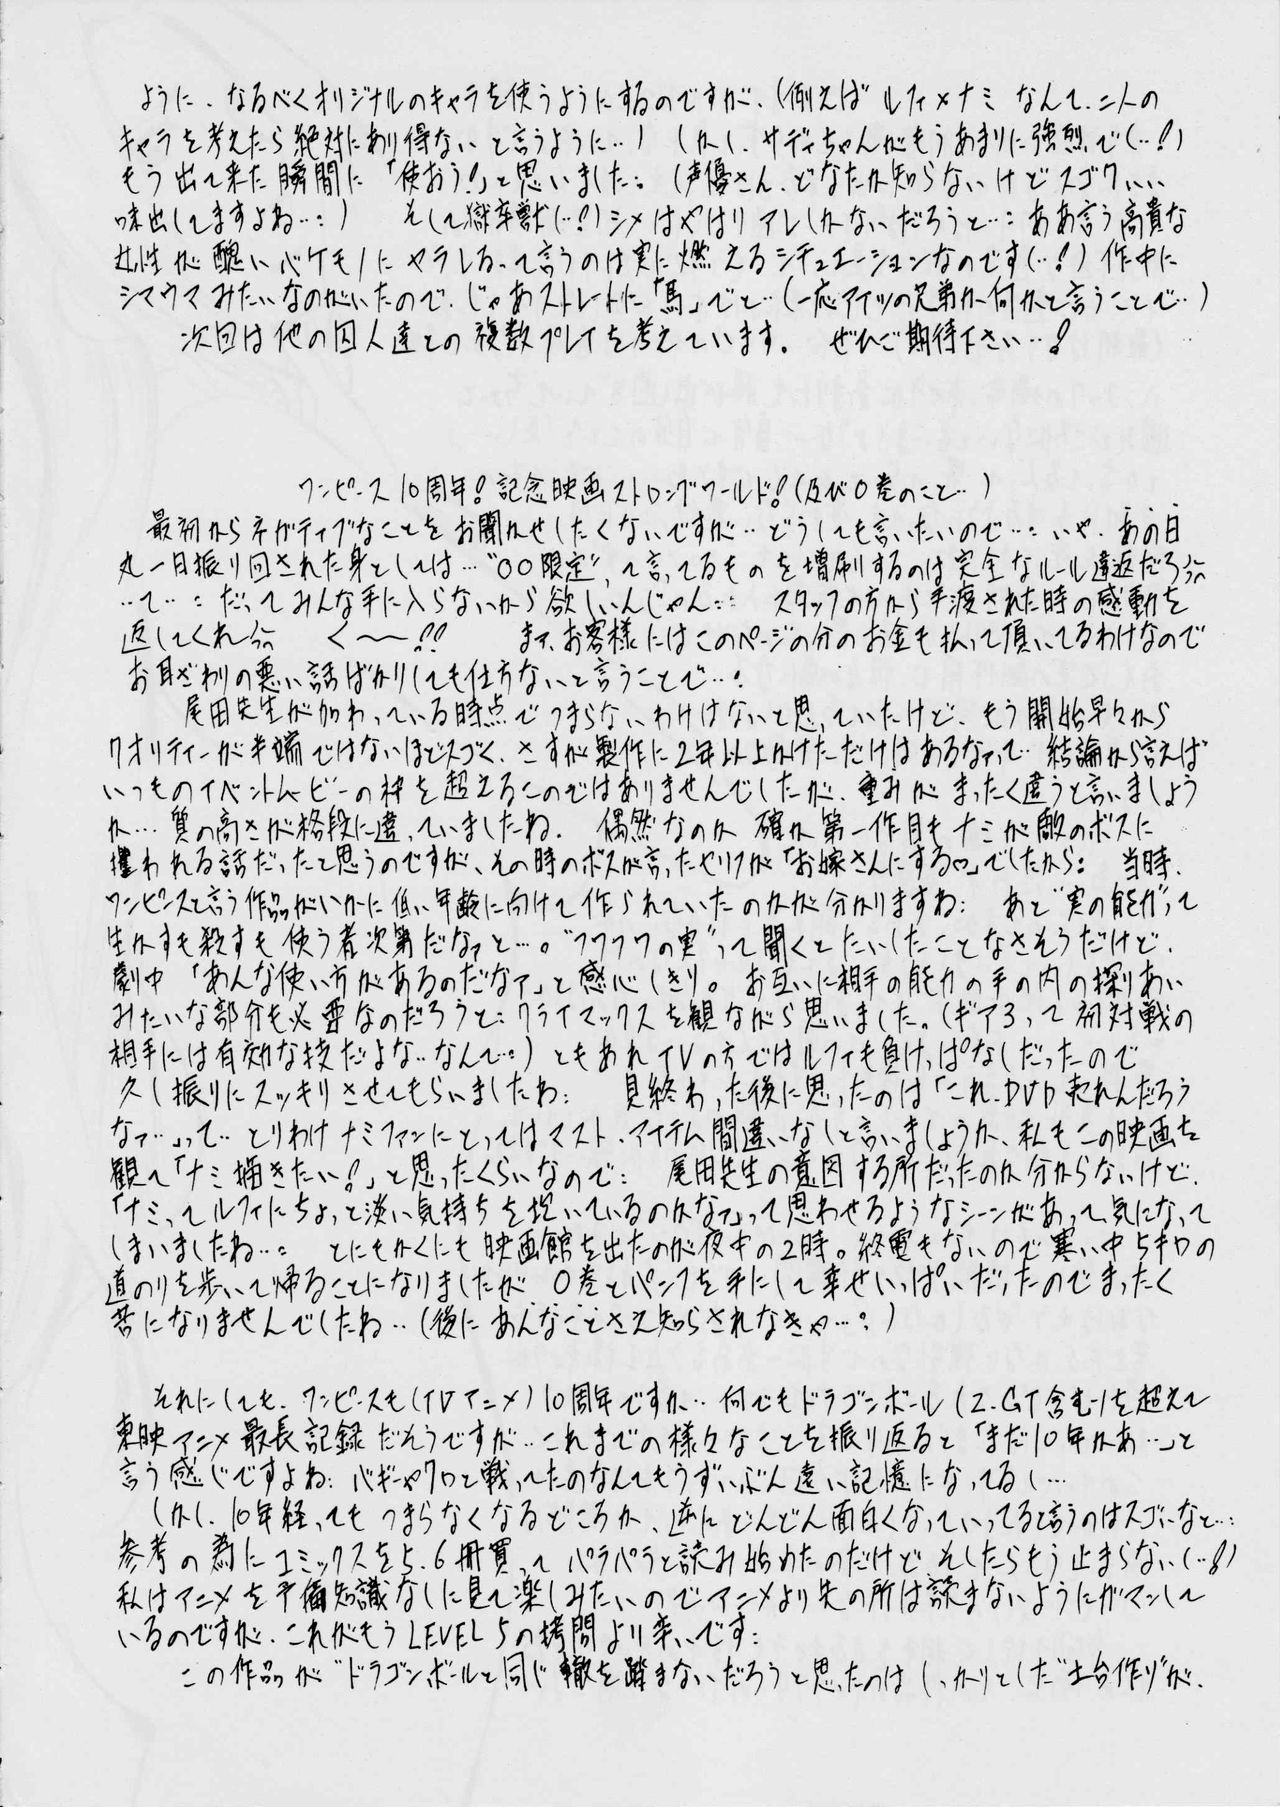 ように、なるべくオリジナルのキャラを使うようにするのですが、(例えば ルフィ×ナミ なんて、二人の
キャラを考えたら絶対にあり得ない と言うように‥) しかし、サディちゃんがもうあまりに強烈で(‥!)
もう出て来た瞬間に「使おう!」と思いました: (声優さん、どなたか知らないけどスゴクいい
味出してますよね‥:) そして獄卒獣(‥!)シメはやはりアレしかないだろうと‥: ああ言う高貴な
女性が醜いバケモノにヤラレるって言うのは実に燃えるシチュエーションなのです(‥!) 作中に
シマウマみたいなのがいたので、じゃあストレートに「馬」でと‥(一応アイツの兄弟か何かと言うことで‥)
次回は他の囚人達との複数プレイを考えています。 ぜひご期待下さい‥!
ワンピース10周年!記念映画ストロングワールド!(及び0巻のこと‥)
最初からネガティブなことをお聞かせしたくないですが‥どうしても言いたいので‥: いや、あの日
丸一日振り回された身としては…“○○限定”って言ってるものを増刷するのは完全なルール違反だろ
‥て‥: だってみんな手に入らないから欲しいんじゃん:: スタッフの方から手渡された時の感動を
返してくれ く〜〜!! まァ、お客様にはこのページの分のお金も払って頂いてるわけなので
お耳ざわりの悪い話ばかりしても仕方ないと言うことで‥:
尾田先生が加わっている時点でつまらないわけはないと思っていたけど、もう開始早々から
クオリティーが半端ではないほどスゴく、さすが製作に2年以上かけただけはあるなァって‥ 結論から言えば
いつものイベントムービーの枠を超えるものではありませんでしたが、重みがまったく違うと言いましょう
か‥質の高さが格段に違っていましたね. 偶然なのか 確か第一作目もナミが敵のボスに
攫われる話だったと思うのですが、その時のボスが言ったセリフが「お嫁さんにする♡」でしたから: 当時、
ワンピースと言う作品がいかに低い年齢に向けて作られていたのかが分かりますね: あと“実の能力”って
生かすも殺すも使う者次第だなァと‥。“フワフワの実”って聞くとたいしたことなさそうだけど、
劇中「あんな使い方があるのだなァ」と感心しきり。 お互いに相手の能力の手の内の探りあい
みたいな部分も必要なのだろうと: クライマックスを観ながら思いました。(ギア3って初対戦の
相手には有効な技だよな‥なんて:) ともあれTVの方ではルフィも負けっぱなしだったので
久し振りにスッキリさせてもらいましたね: 見終わった後に思ったのは「これ、DVD売れんだろう
なァ‥」って‥とりわけナミファンにとってはマスト・アイテム間違いなしと言いましょうか、私もこの映画を
観て「ナミ描きたい!」と思ったくらいなので: 尾田先生の意図する所だったのか分からないけど、
「ナミってルフィにちょっと淡い気持ちを抱いているのかなァ」って思わせるようなシーンがあって、気になって
しまいましたね‥: とにもかくにも映画館を出たのが夜中の2時。終電もないので寒い中5キロの
道のりを歩いて帰ることになりましたが 0巻とパンフを手にして幸せいっぱいだったのでまったく
苦になりませんでしたね‥(後にあんなことさえ知らされなきゃ‥:)
それにしても、ワンピースも(TVアニメ)10周年ですか‥何でもドラゴンボール(Z、GT含む)を超えて
東映アニメ最長記録だそうですが‥これまでの様々なことを振り返ると「まだ10年かあ‥」と
言う感じですよね: バギーやクロと戦ってたのなんてもうずいぶん遠い記憶になってるし…
しかし、10年経ってもつまらなくなるどころか、逆にどんどん面白くなっていってると言うのはスゴいなと‥:
参考の為にコミックスを5、6冊買ってパラパラと読み始めたのだけど そしたらもう止まらない(‥!)
私はアニメを予備知識なしに見て楽しみたいのでアニメより先の所は読まないようにガマンして
いるのですが、これがもう LEVEL5の拷問より辛いです:
この作品が“ドラゴンボールと同じ轍を踏まないだろうと思ったのは しっかりとした“土台作り”が、